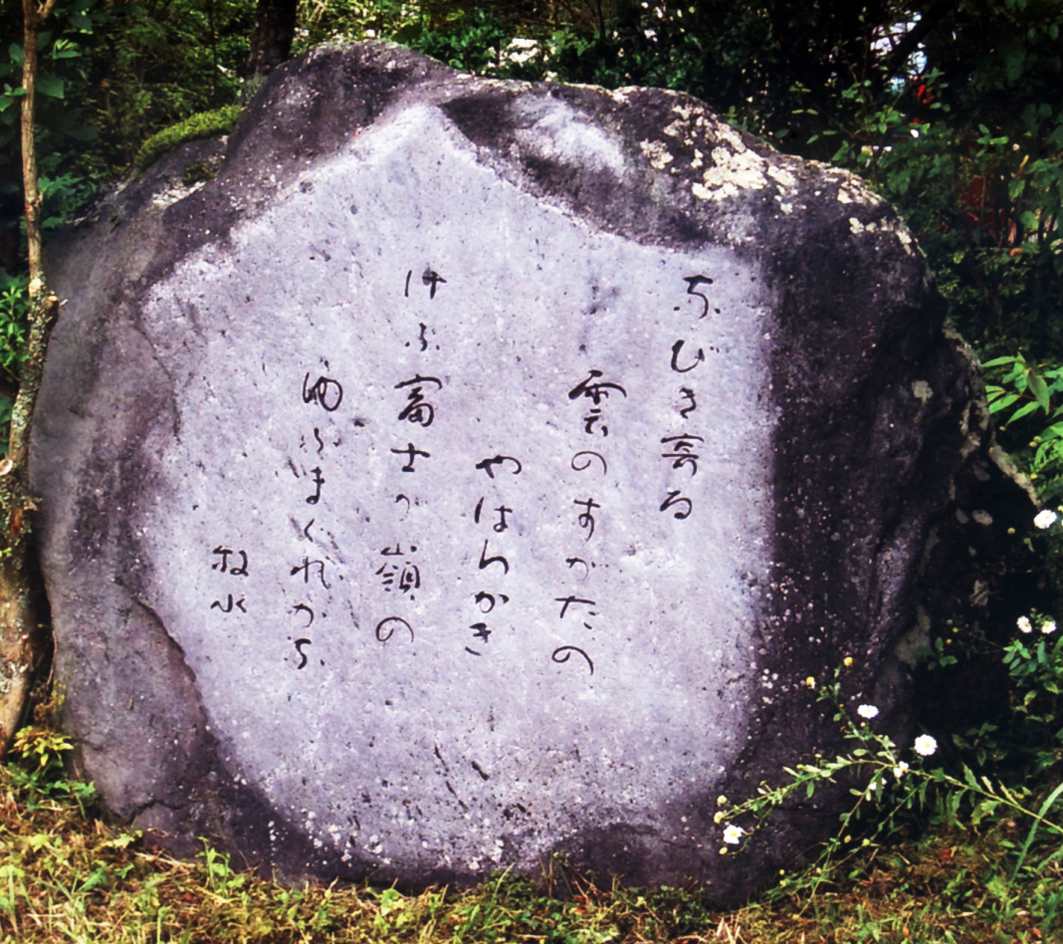 なびき寄る
雲のすがたの
やはらかき
けふ富士か嶺の
ゆふまくれかな
牧水